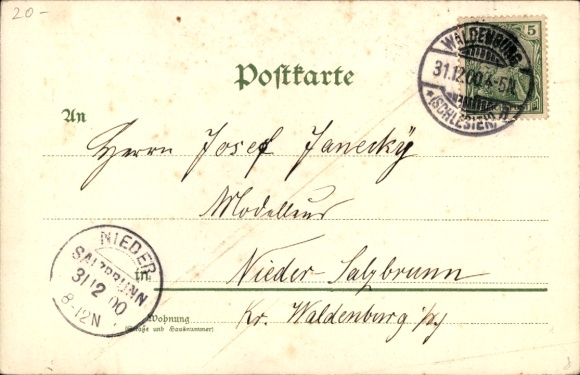 20-
5
WALDENBURG
31.12.00.4-5N.
*(SCHLESIEN)
Postkarte
An
Herrn Josef Janecky
Modelleur
in Nieder-Salzbrunn
Kr. Waldenburg i/Schl.
Wohnung
(Straße und Hausnummer)
NIEDER
SALZBRUNN
31 12 00
8-12N